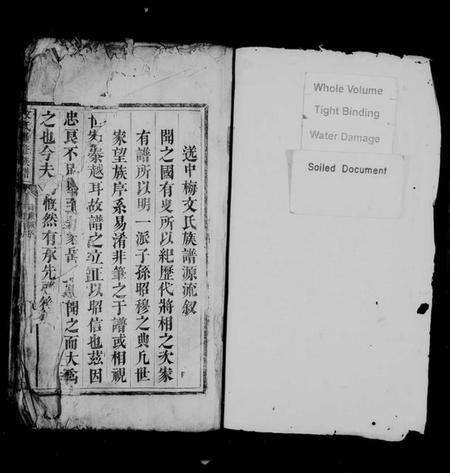 送中梅文氏族譜源流叙
聞之國有史所以紀歷代將相之次家
有譜所以明一派子孫昭穆之典凡世
家望族序系易淆非筆之于譜或相視
秦越耳故譜之立正以昭信也茲因
忠良不 聞之而大爲
之也今夫 慨然有承先
Whole Volume
Tight Binding
Water Damage
Soiled Document